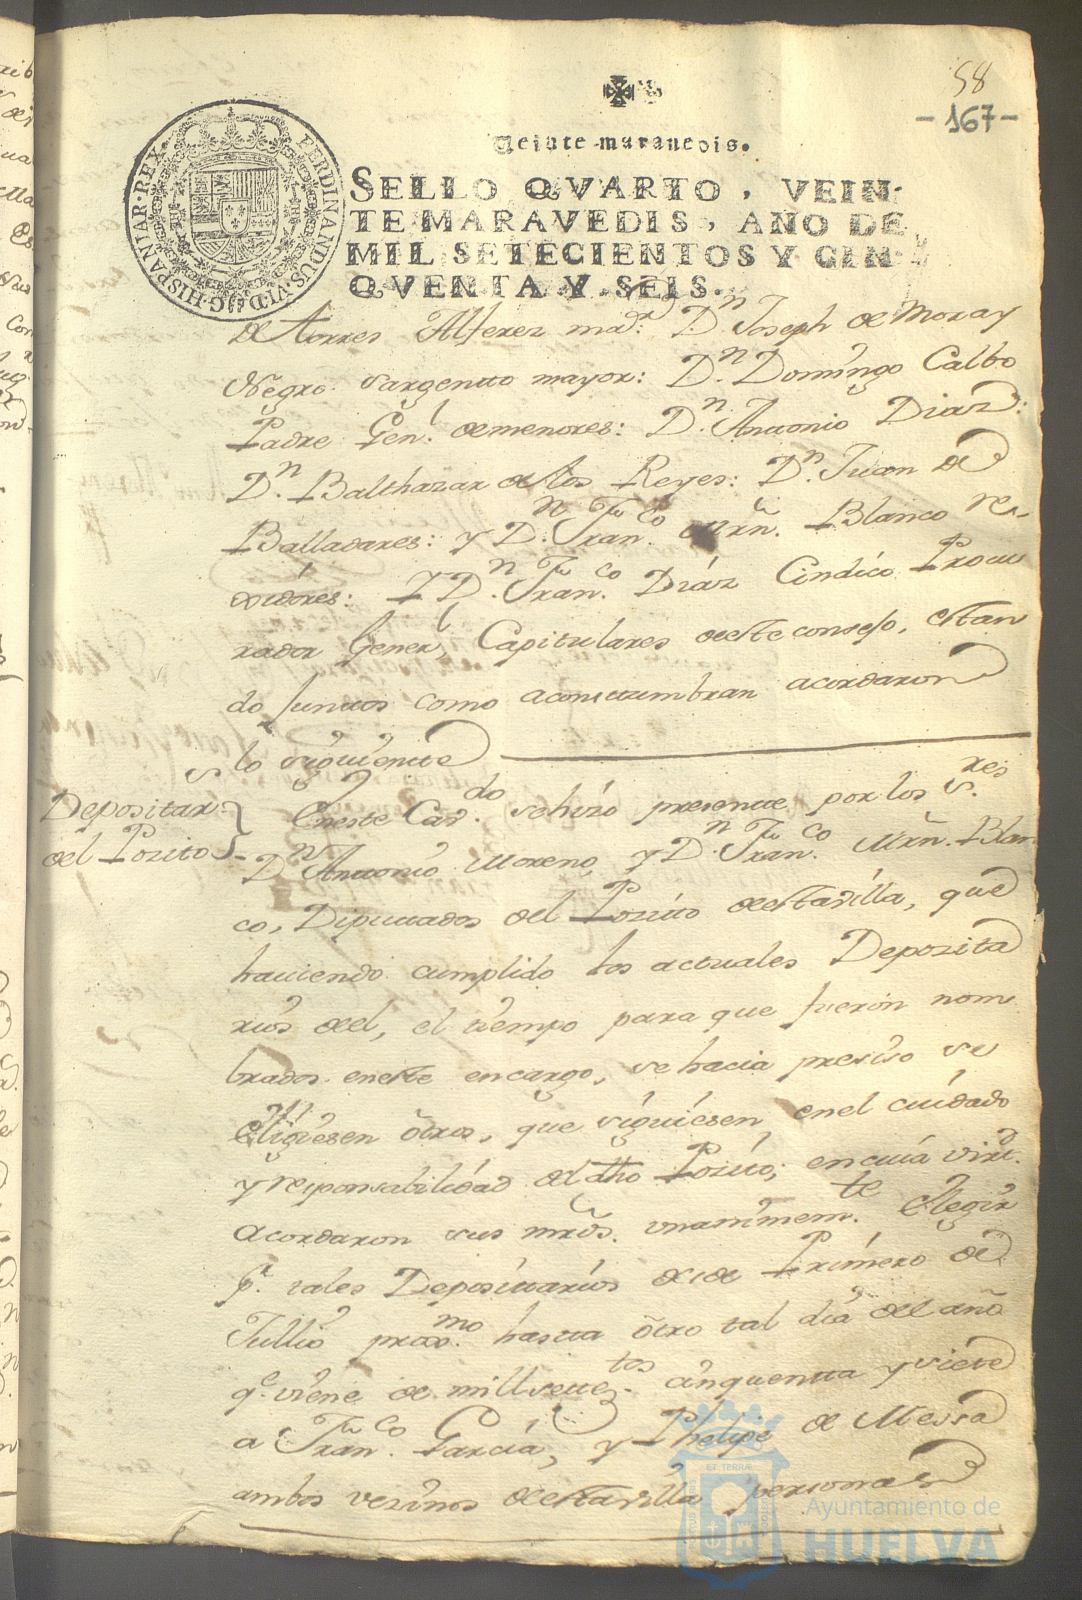 58
-167-
Veinte maravedis.
SELLO QVARTO, VEIN-
TE MARAVEDIS, AÑO DE
MIL SETECIENTOS Y CIN-
QVENTA Y SEIS.
FERDINANDUS·VI·D·G·HISPANIAR·REX
de torres Alferez maor: Dn Joseph de Mora y
Negro Sargentto mayor: Dn Domingo Calbo
Padre Genl. de menores: Dn. Antonio Diaz:
Dn. Balthazar de los Reyes: Dn. Juan de
Balladares: y Dn. Franco. Mrñ. Blanco re-
xidores: Y Dn. Franco. Diáz Cindíco Procu
rador Generl, Capitulares deste consejo, estan
do juntos como acosttumbran acordaron
lo siguiente
Depositars
del Pozito
En este Cavdo. se hizo presente por los Sres.
Dn Antonio Moreno, y Dn. Franco. Mrñ. Blan
co, Diputtados del Pozitto de estta villa, que
haviendo cumplido los actuales Deposita
rios del, el tiempo para que fueron nom
brados en este encargo, se hacia preciso se
Eligiesen otros, que siguiesen en el cuidado
y responsabilidad del dho Pozito; en cuia virtd.
acordaron sus mrds. unanimemte. Elegir
pr. tales Deposittarios desde Primero de
Jullio proxmo. hasta otro tal dia del año
qe. viene de mill settetos. cinquentta y siete
a Franco. Garcia, y Phelipe de Messa
ambos vezinos de estta villa personas
ET TERRÆ
Ayuntamiento de
HUELVA